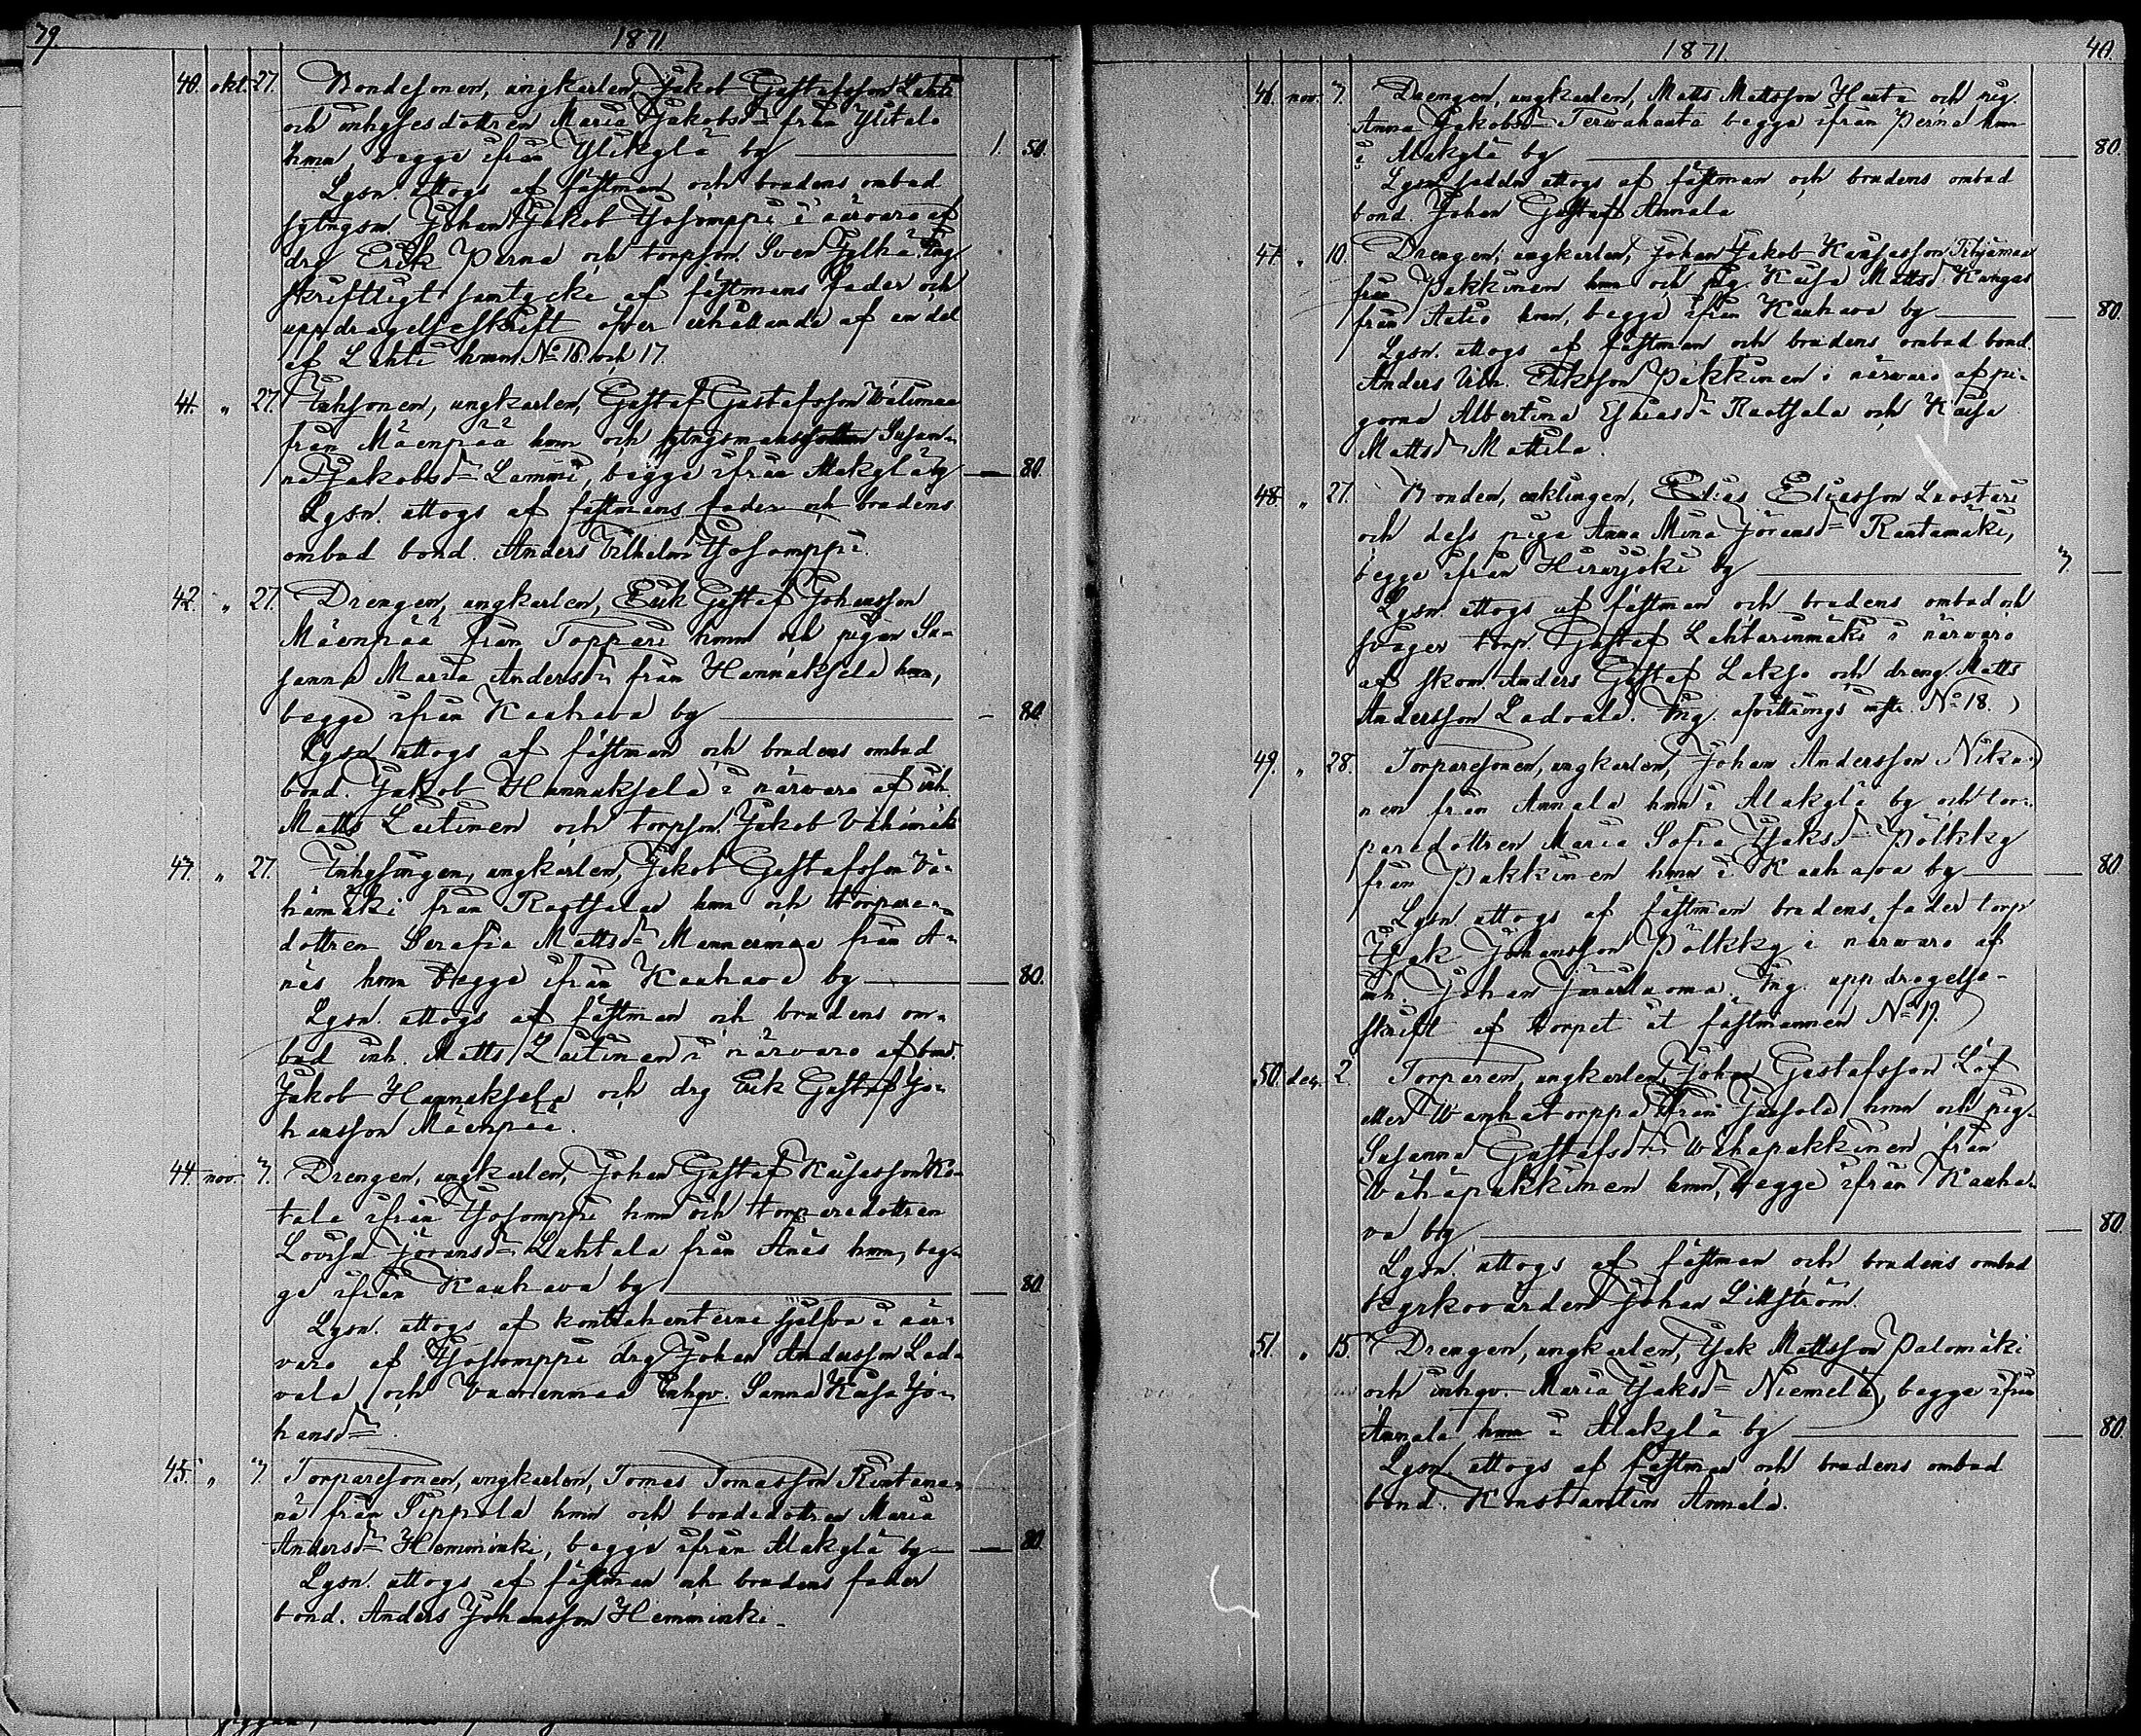 79.
1871
40. okt. 27. Bondesonen, ungkarlen, Jakob Gustafsson Lahti
och inhysesdottren Maria Jakobsd:r från Ylitalo
hmn, begge ifrån Ylikylä by 1. 50.
Lysn. uttogs af fästman och brudens ombud
sytngsm. Johan Jakob Yosomppi i närvaro af
drg Erik Perna och torpson. Sven Jylhä. Ing.
skriftligt samtycke af fästmans fader och
uppdragelseskrift öfver erhållande af en del
af Lahti hmn. No 16 och 17.
41. " 27. Inhsonen, ungkarlen, Gustaf Gustafsson Välimaa
från Mäenpää hmn och sytngsmansdottren Susan-
na Jakobsd:r Lammi, begge ifrån Alakylä by 80.
Lysn. uttogs af fästmans fader och brudens
ombud bond. Anders Vilhelm Yosomppi.
42. " 27. Drengen, ungkarlen, Erik Gustaf Johansson
Mäenpää från Toppari hmn och pigan Su-
sanna Maria Andersd:r från Hannuksela hmn,
begge ifrån Kauhava by 80.
Lysn. uttogs af fästman och brudens ombud
bond. Jakob Hannuksela i närvaro af inh.
Matts Laitinen och torpson. Jakob Vähämäki
43. " 27. Inhysingen, ungkarlen, Jakob Gustafsson Vä-
hämäki från Ruotsala hmn och torpare-
dottren Serafia Mattsd:r Mannermaa från A-
näs hmn begge ifrån Kauhava by 80.
Lysn. uttogs af fästman och brudens om-
bud inh. Matts Laitinen i närvaro af bond.
Jakob Hannuksela och drg Erik Gustaf Jo-
hansson Mäenpää.
44. nov. 3. Drengen, ungkarlen, Johan Gustaf Kaisasson Ko-
tala ifrån Yosomppi hmn och torparedottren
Lovisa Jöransd:r Lahtala från Anäs hmn, beg-
ge ifrån Kauhava by 80.
Lysn. uttogs af kontrahenterne sjelfva i när-
varo af Yosomppi drg Johan Andersson Lad-
vala och Vuorenmaa inhqv. Sanna Kaisa Jo-
hansd:r.
45. " 3. Torparesonen, ungkarlen, Tomas Tomasson Rintama-
nä från Sippola hmn och bondedottren Maria
Andersd:r Hemminki, begge ifrån Alakylä by 80
Lysn. uttogs af fästman och brudens fader
bond. Anders Johansson Hemminki.
1871. 40.
46. nov. 7. Drengen, ungkarlen, Matts Mattsson Hauta och pig.
Anna Jakobsd:r Tervahauta begge ifrån Perna hmn
i Alakylä by 80.
Lysn.sedeln uttogs af fästman och brudens ombud
bond. Johan Gustaf Annala
47. " 10. Drengen, ungkarlen, Johan Jakob Kaisasson Pihjamaa
från Pakkinen hmn och pig. Kaisa Mattsd:r Kangas
från Autio hmn, begge ifrån Kauhava by 80.
Lysn. uttogs af fästman och brudens ombud bond.
Anders Vilh. Eriksson Pakkinen i närvaro af pi-
gorna Albertina Esaiasd:r Ruotsala och Kaisa
Mattsd:r Mattila.
48. " 27. Bonden, enklingen, Elias Eliasson Luostari
och dess piga Anna Mina Jöransd:r Rantamäki,
begge ifrån Hirvijoki by 3
Lysn. uttogs af fästman och brudens ombud och
svåger torp. Gustaf Lahtarinmäki i närvaro
af skom. Anders Gustaf Lakso och dreng. Matts
Andersson Ladvala. Ing. afvittrings instr. No 18.
49. " 28. Torparesonen, ungkarlen, Johan Andersson Niku-
nen från Annala hmn i Alakylä by och tor-
paredottren Maria Sofia Isaksd:r Pölkky
från Pakkinen hmn i Kauhava by 80.
Lysn. uttogs af fästman brudens fader torp
Isak Johansson Pölkky i närvaro af
inh. Johan Juurluoma. Ing. uppdragelse-
skrift af torpet åt fästmannen No 19.
50. dec. 2. Torparen, ungkarlen, Johan Gustafsson Löf
eller Wanhatorppa från Jussola hmn och pig.
Susanna Gustafsd:r Wähapakkinen från
Wähäpakkinen hmn, begge ifrån Kauha-
va by 80.
Lysn. uttogs af fästman och brudens ombud
kyrkovärden Johan Littström.
51. " 15 Drengen, ungkarlen, Isak Mattsson Palomäki
och inhqv. Maria Isaksd:r Niemelä, begge ifrån
Annala hmn i Alakylä by 80.
Lysn. uttogs af fästman och brudens ombud
bond. Konstantin Annala.